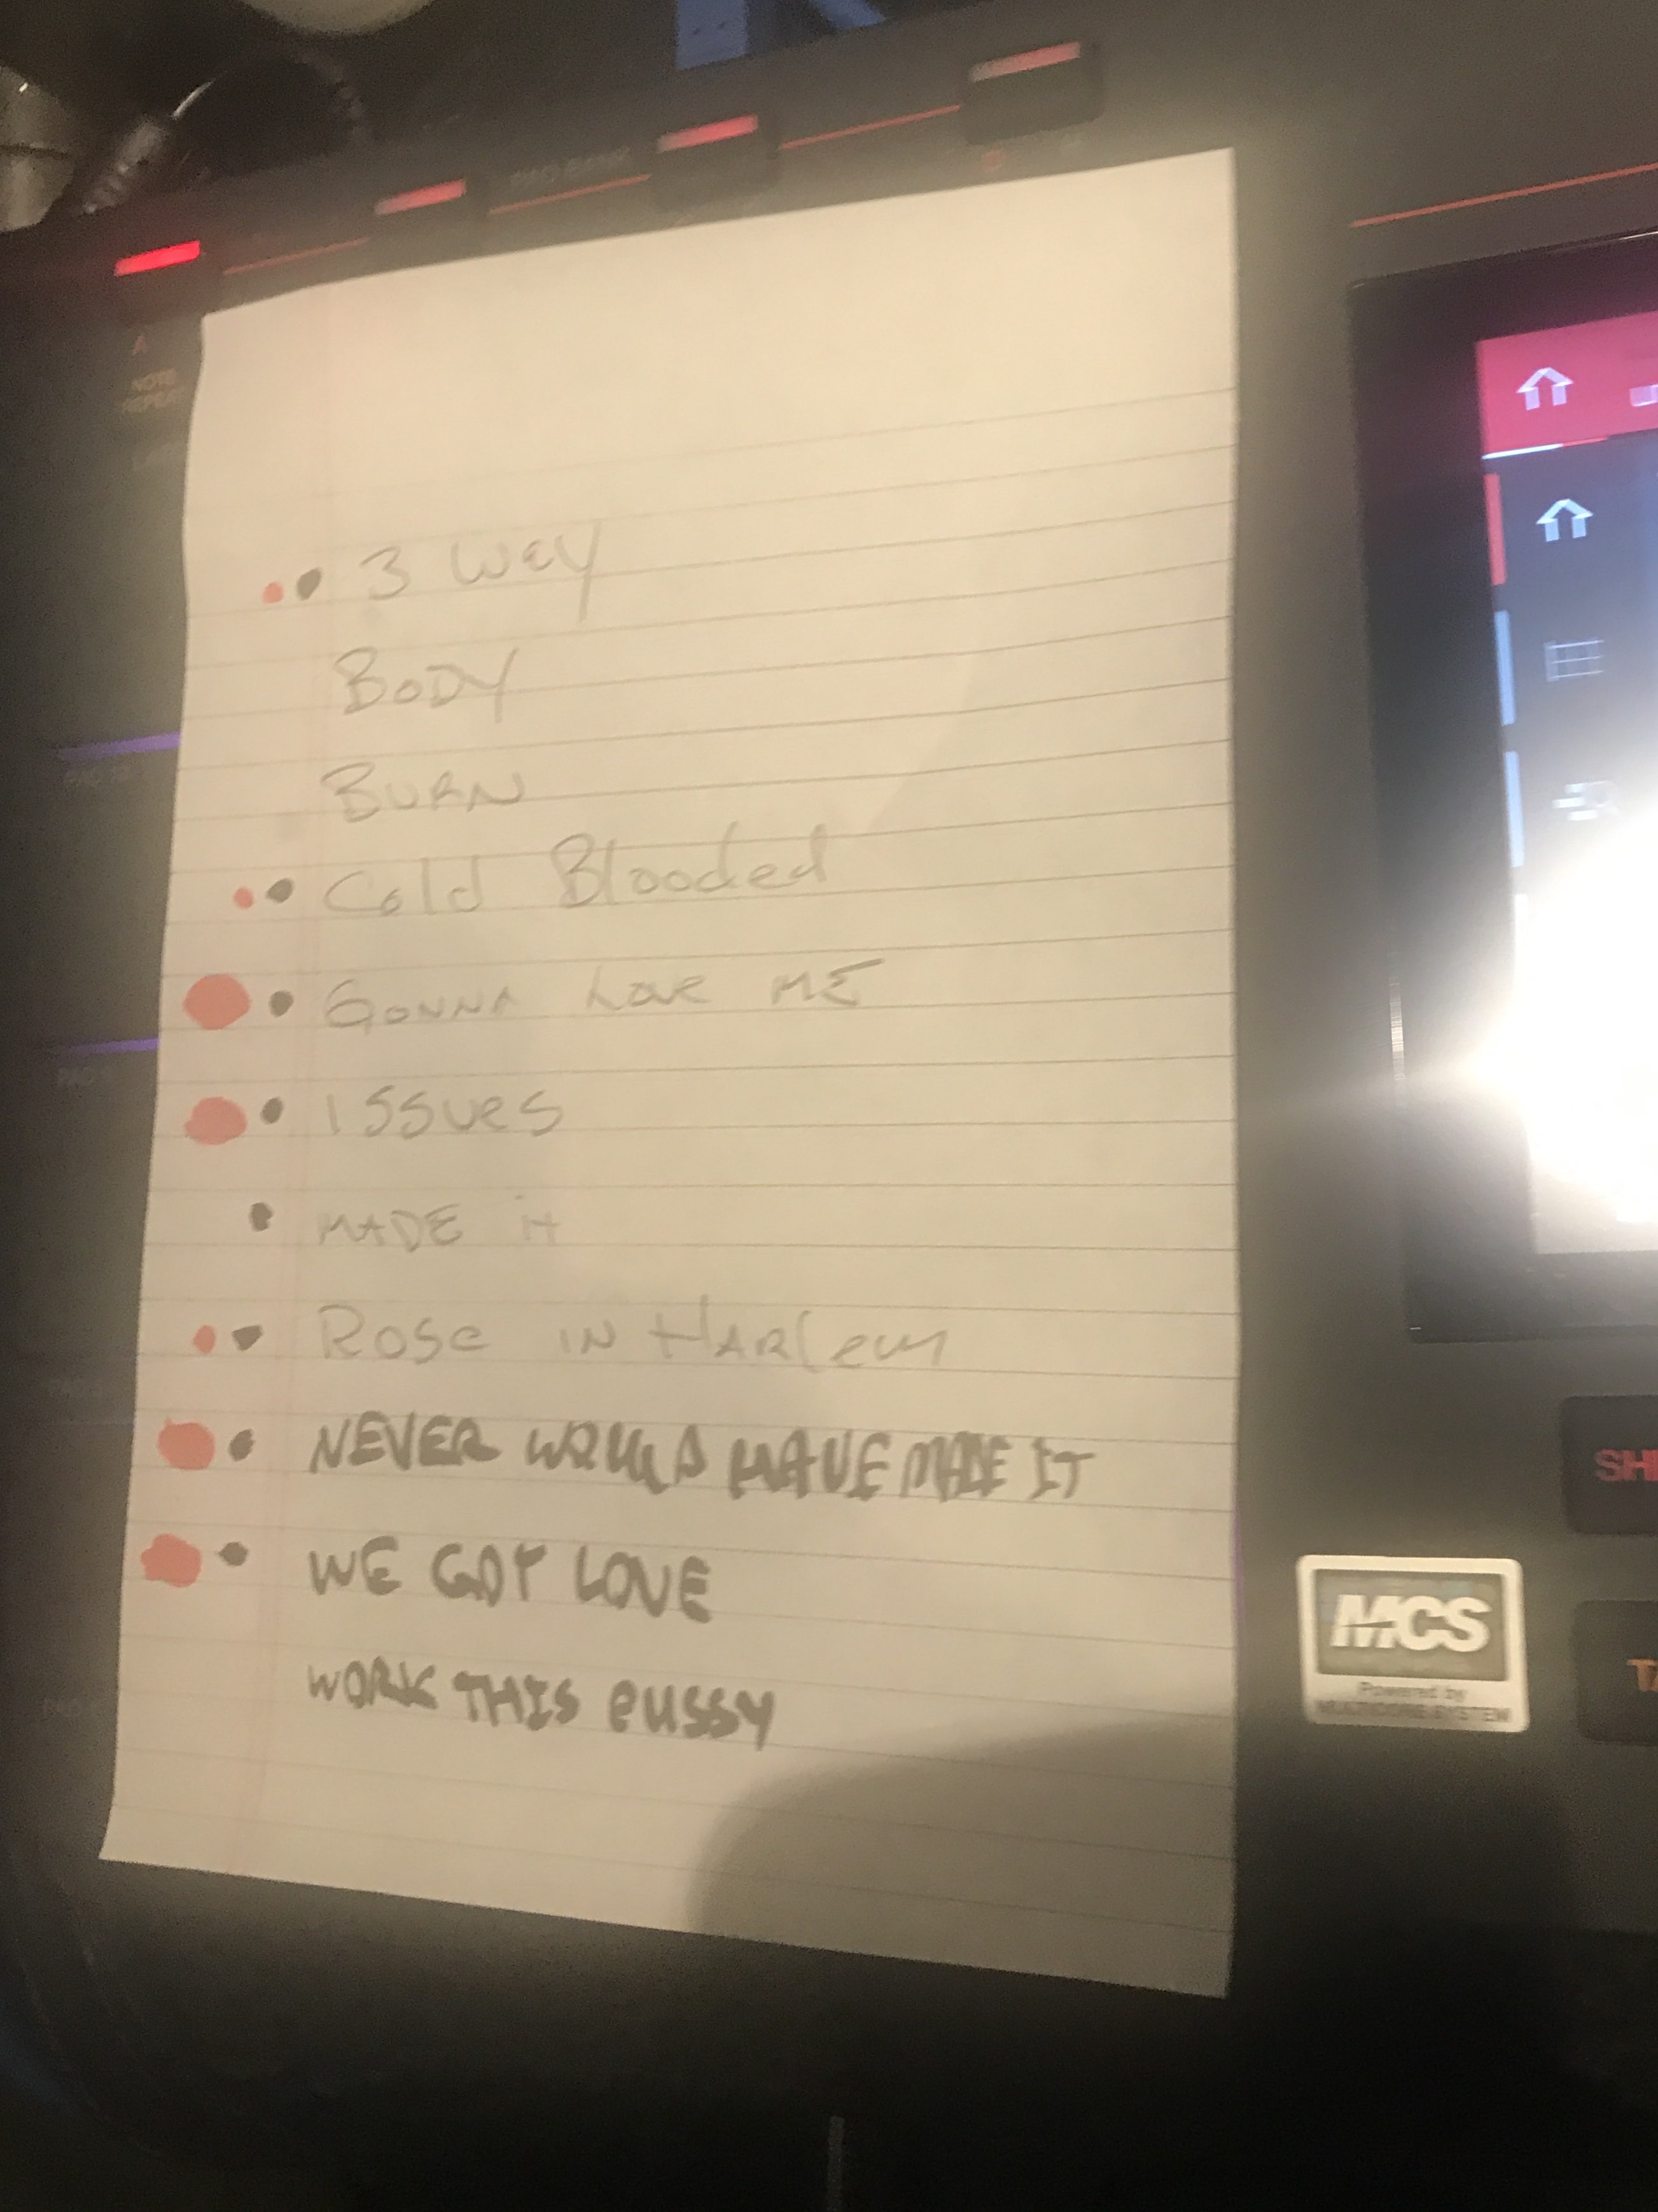 A
NOTE
REPEAT
3 WAY
BODY
BURN
Cold Blooded
GONNA LOVE ME
ISSUES
MADE it
ROSE IN HARlem
NEVER WOULD HAVE MADE IT
WE GOT LOVE
WORK THIS PUSSY
SHI
TA
MCS
Powered by
MULTICORE SYSTEM